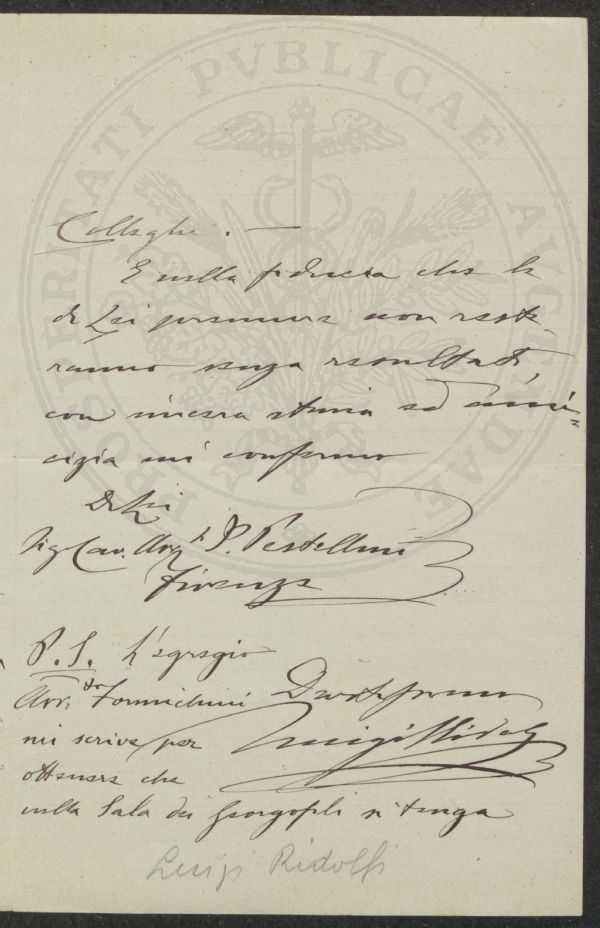 PROSPERITATI PVBLICAE AVGENDAE
Colleghi. —
E nella fiducia che le
di Lei premure non reste-
ranno senza resultati,
con sincera stima ed ami=
cizia mi confermo
Di Lei
Sig Cav. Avv. P. Pestellini
Firenze
P. S. L'egregio
Avv.to Formichini
Devotissimo
mi scrive per
Luigi Ridolfi
ottenere che
nella Sala dei Georgofili si tenga
Luigi Ridolfi